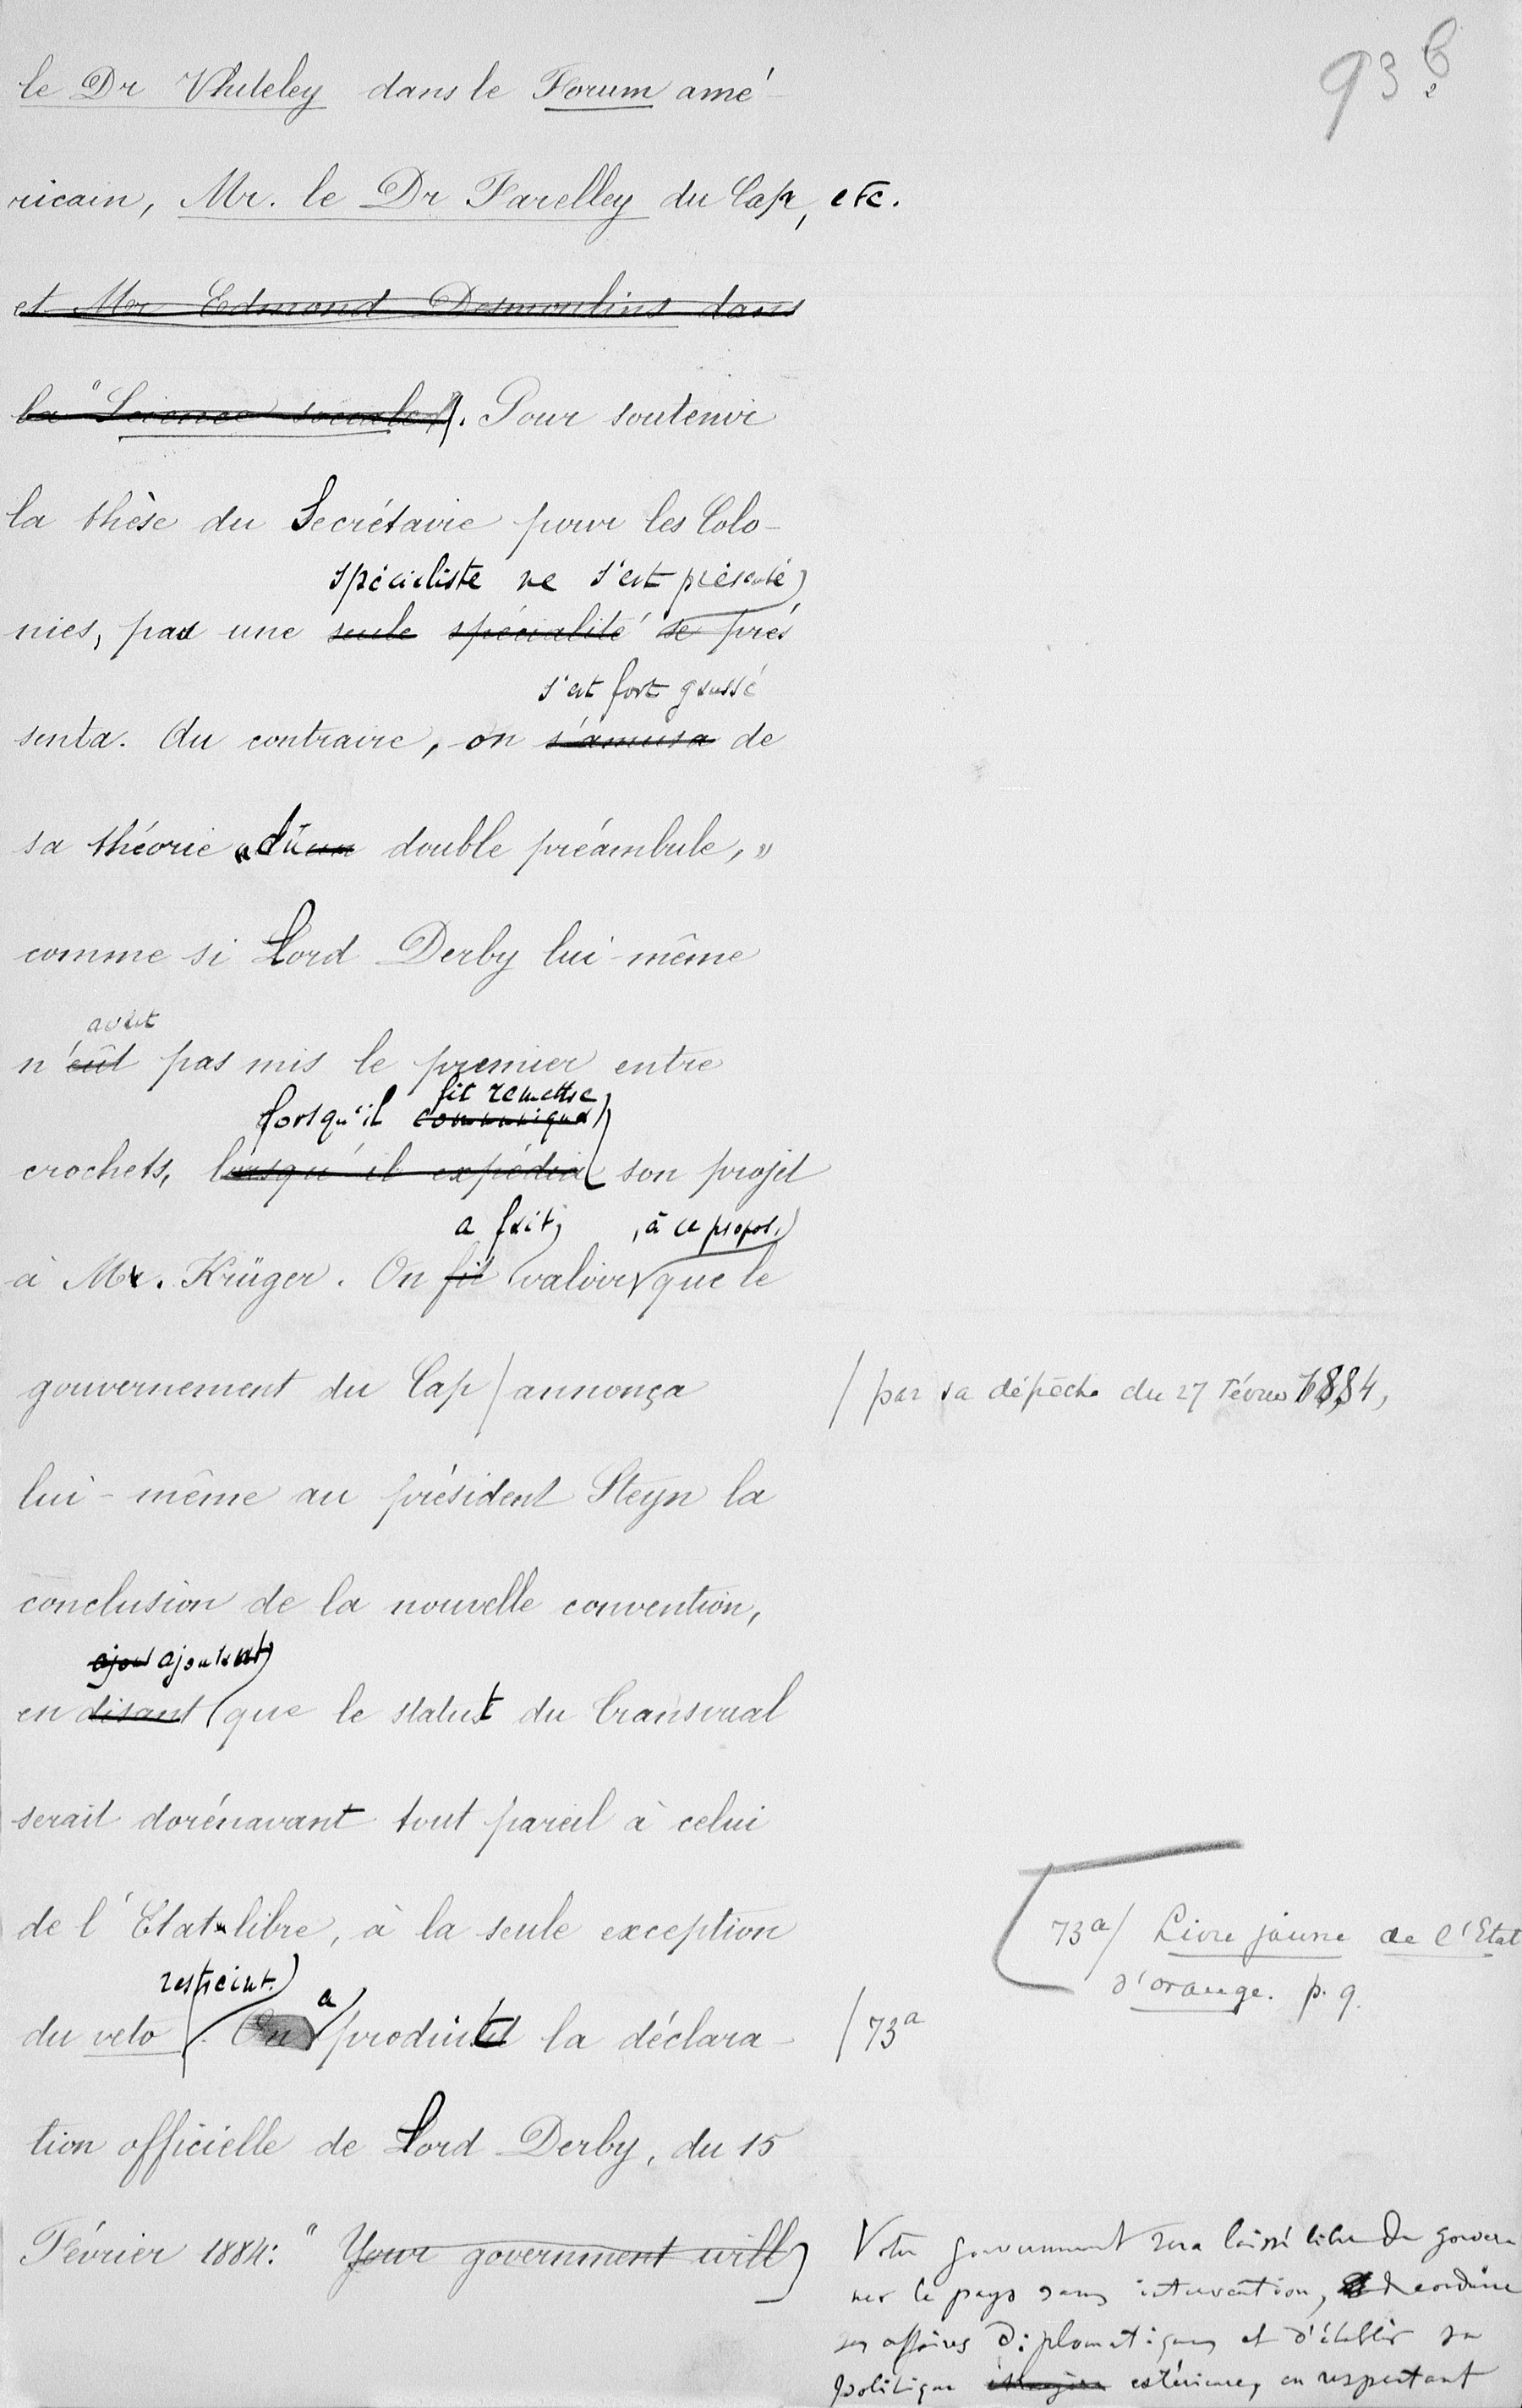 93 b
le Dr Whiteley dans le Forum amé-
ricain, Mr. le Dr Farelley du Cap, etc.
et Mr Edmond Desmoulins dans
la "Science sociale". Pour soutenir
la thèse du Secrétaire pour les Colo-
spécialiste ne s'est présenté
nies, pas une seule spécialité se pré
s'est fort gaussé
senta. Au contraire, on s'amusa de
sa théorie «du double préambule,»
comme si Lord Derby lui-même
avait
n'eût pas mis le premier entre
fit remettre
lorsqu'il communiqua
crochets, lorsqu'il expédia son projet
a fait, , à ce propos,
à Mr. Krüger. On fit valoir que le
gouvernement du Cap / annonça
/ par sa dépêche du 27 Février 1884,
lui-même au président Steyn la
conclusion de la nouvelle convention,
ajou ajoutant
en disant que le statut du Transvaal
serait dorénavant tout pareil à celui
de l'Etat libre, à la seule exception
73a/ Livre jaune de l'Etat
d'orange. p. 9.
restreint. a
du veto. On produit la déclara-
/ 73a
tion officielle de Lord Derby, du 15
Février 1884: " Your government will
Votre gouvernement sera laissé libre de gouver
ner le pays sans intervention, de conduire
ses affaires diplomatiques et d'établir sa
politique étrangère extérieure, en respectant